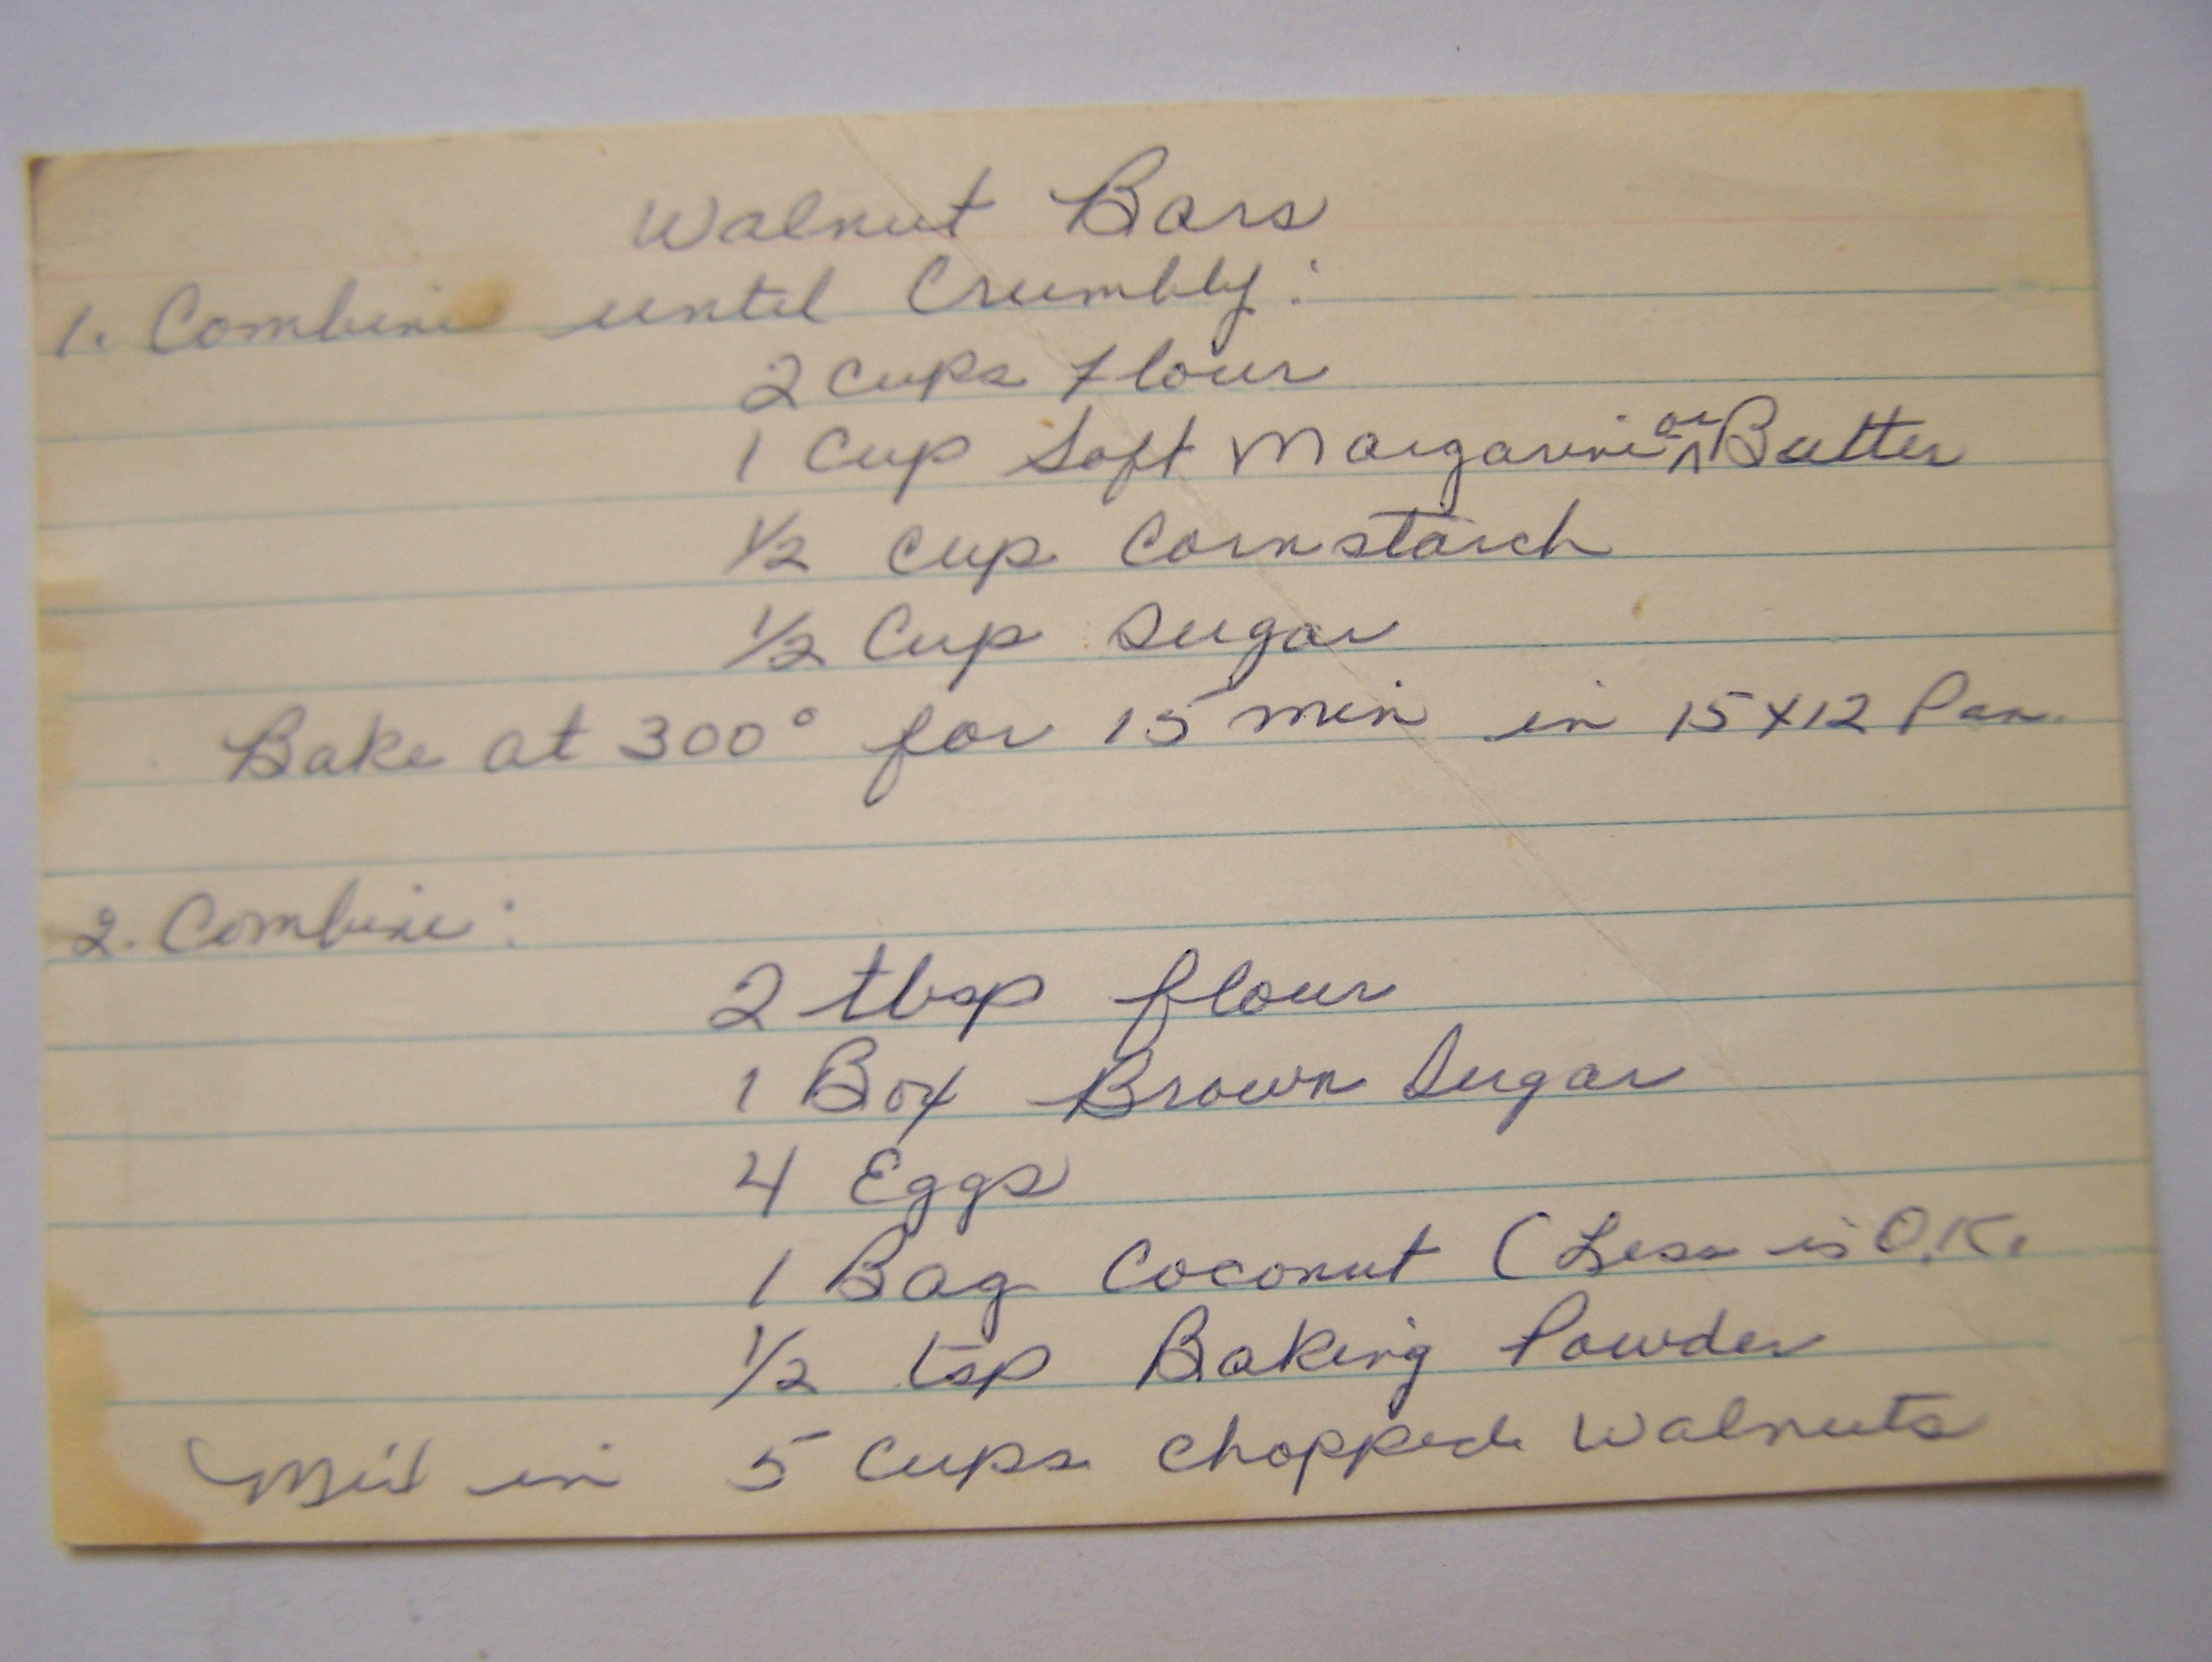 Walnut Bars
1. Combine until Crumbly:
2 cups flour
1 Cup Soft Margarine or Butter
1/2 cup Cornstarch
1/2 Cup Sugar
Bake at 300° for 15 min in 15x12 Pan.
2. Combine:
2 tbsp flour
1 Box Brown Sugar
4 Eggs
1 Bag Coconut (Less is O.K.
1/2 tsp Baking Powder
Mix in 5 Cups chopped Walnuts